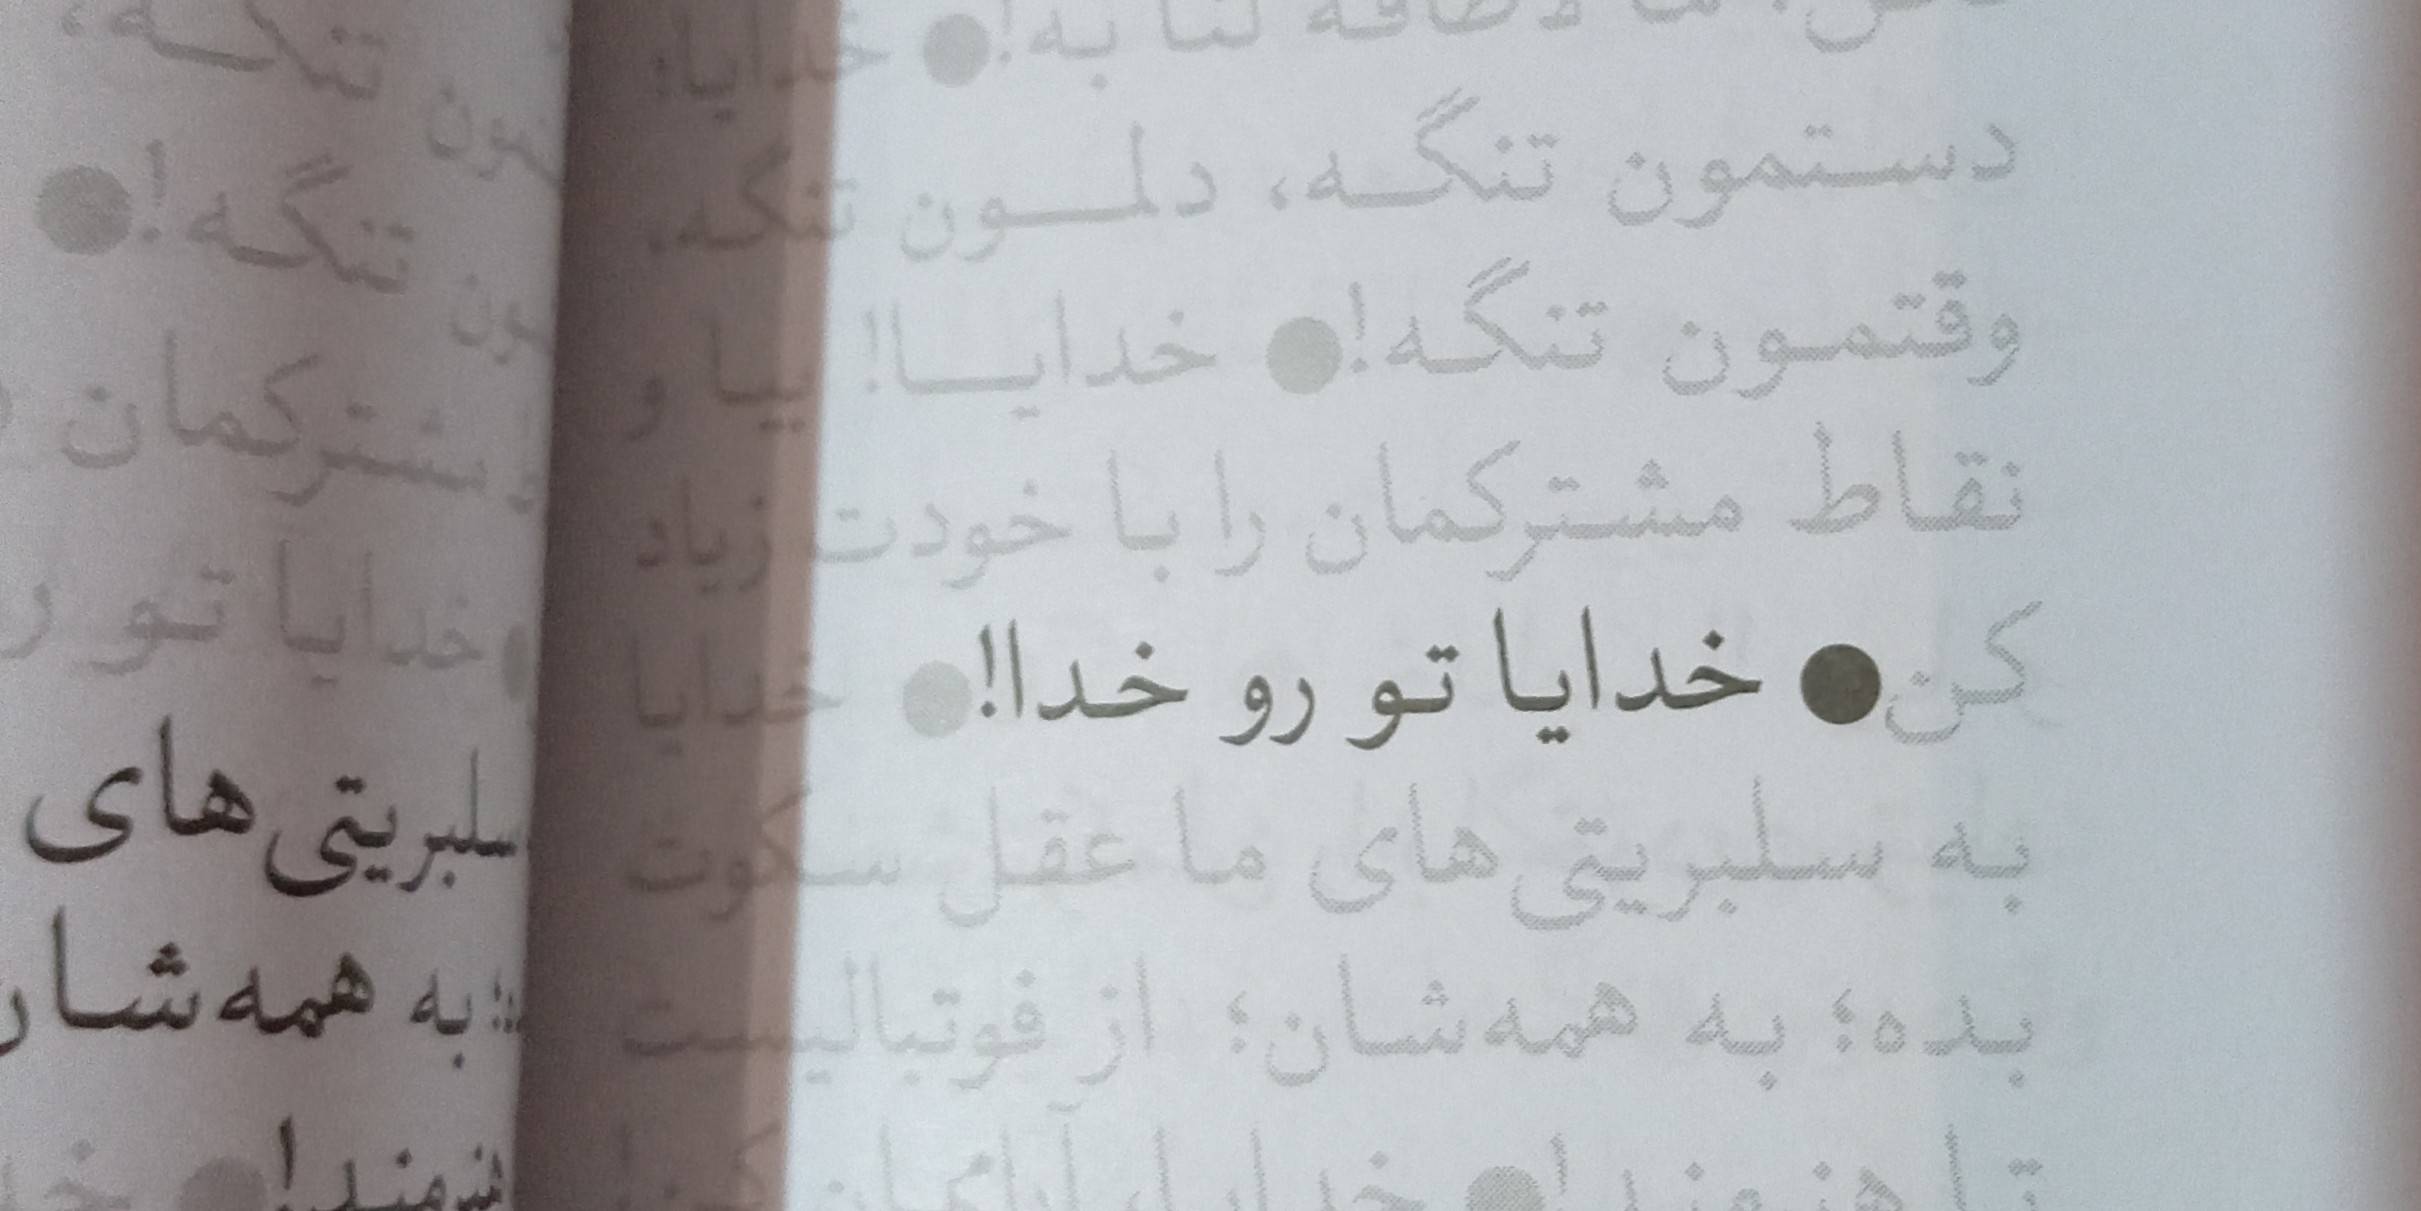 به! ● خدایا!
دستمون تنگه، دلمون تنگه،
وقتمون تنگه! ● خدایا! بیا و
نقاط مشترکمان را با خودت زیاد
کن ● خدایا تو رو خدا! ● خدایا
به سلبریتی‌های ما عقل سکوت
بده؛ به همه‌شان؛ از فوتبالیست
تا هنرمند! ●
تنگه،
تنگه! ●
مشترکمان
خدایا تو ر
سلبریتی‌های
به همه‌شان
هنرمند! ●